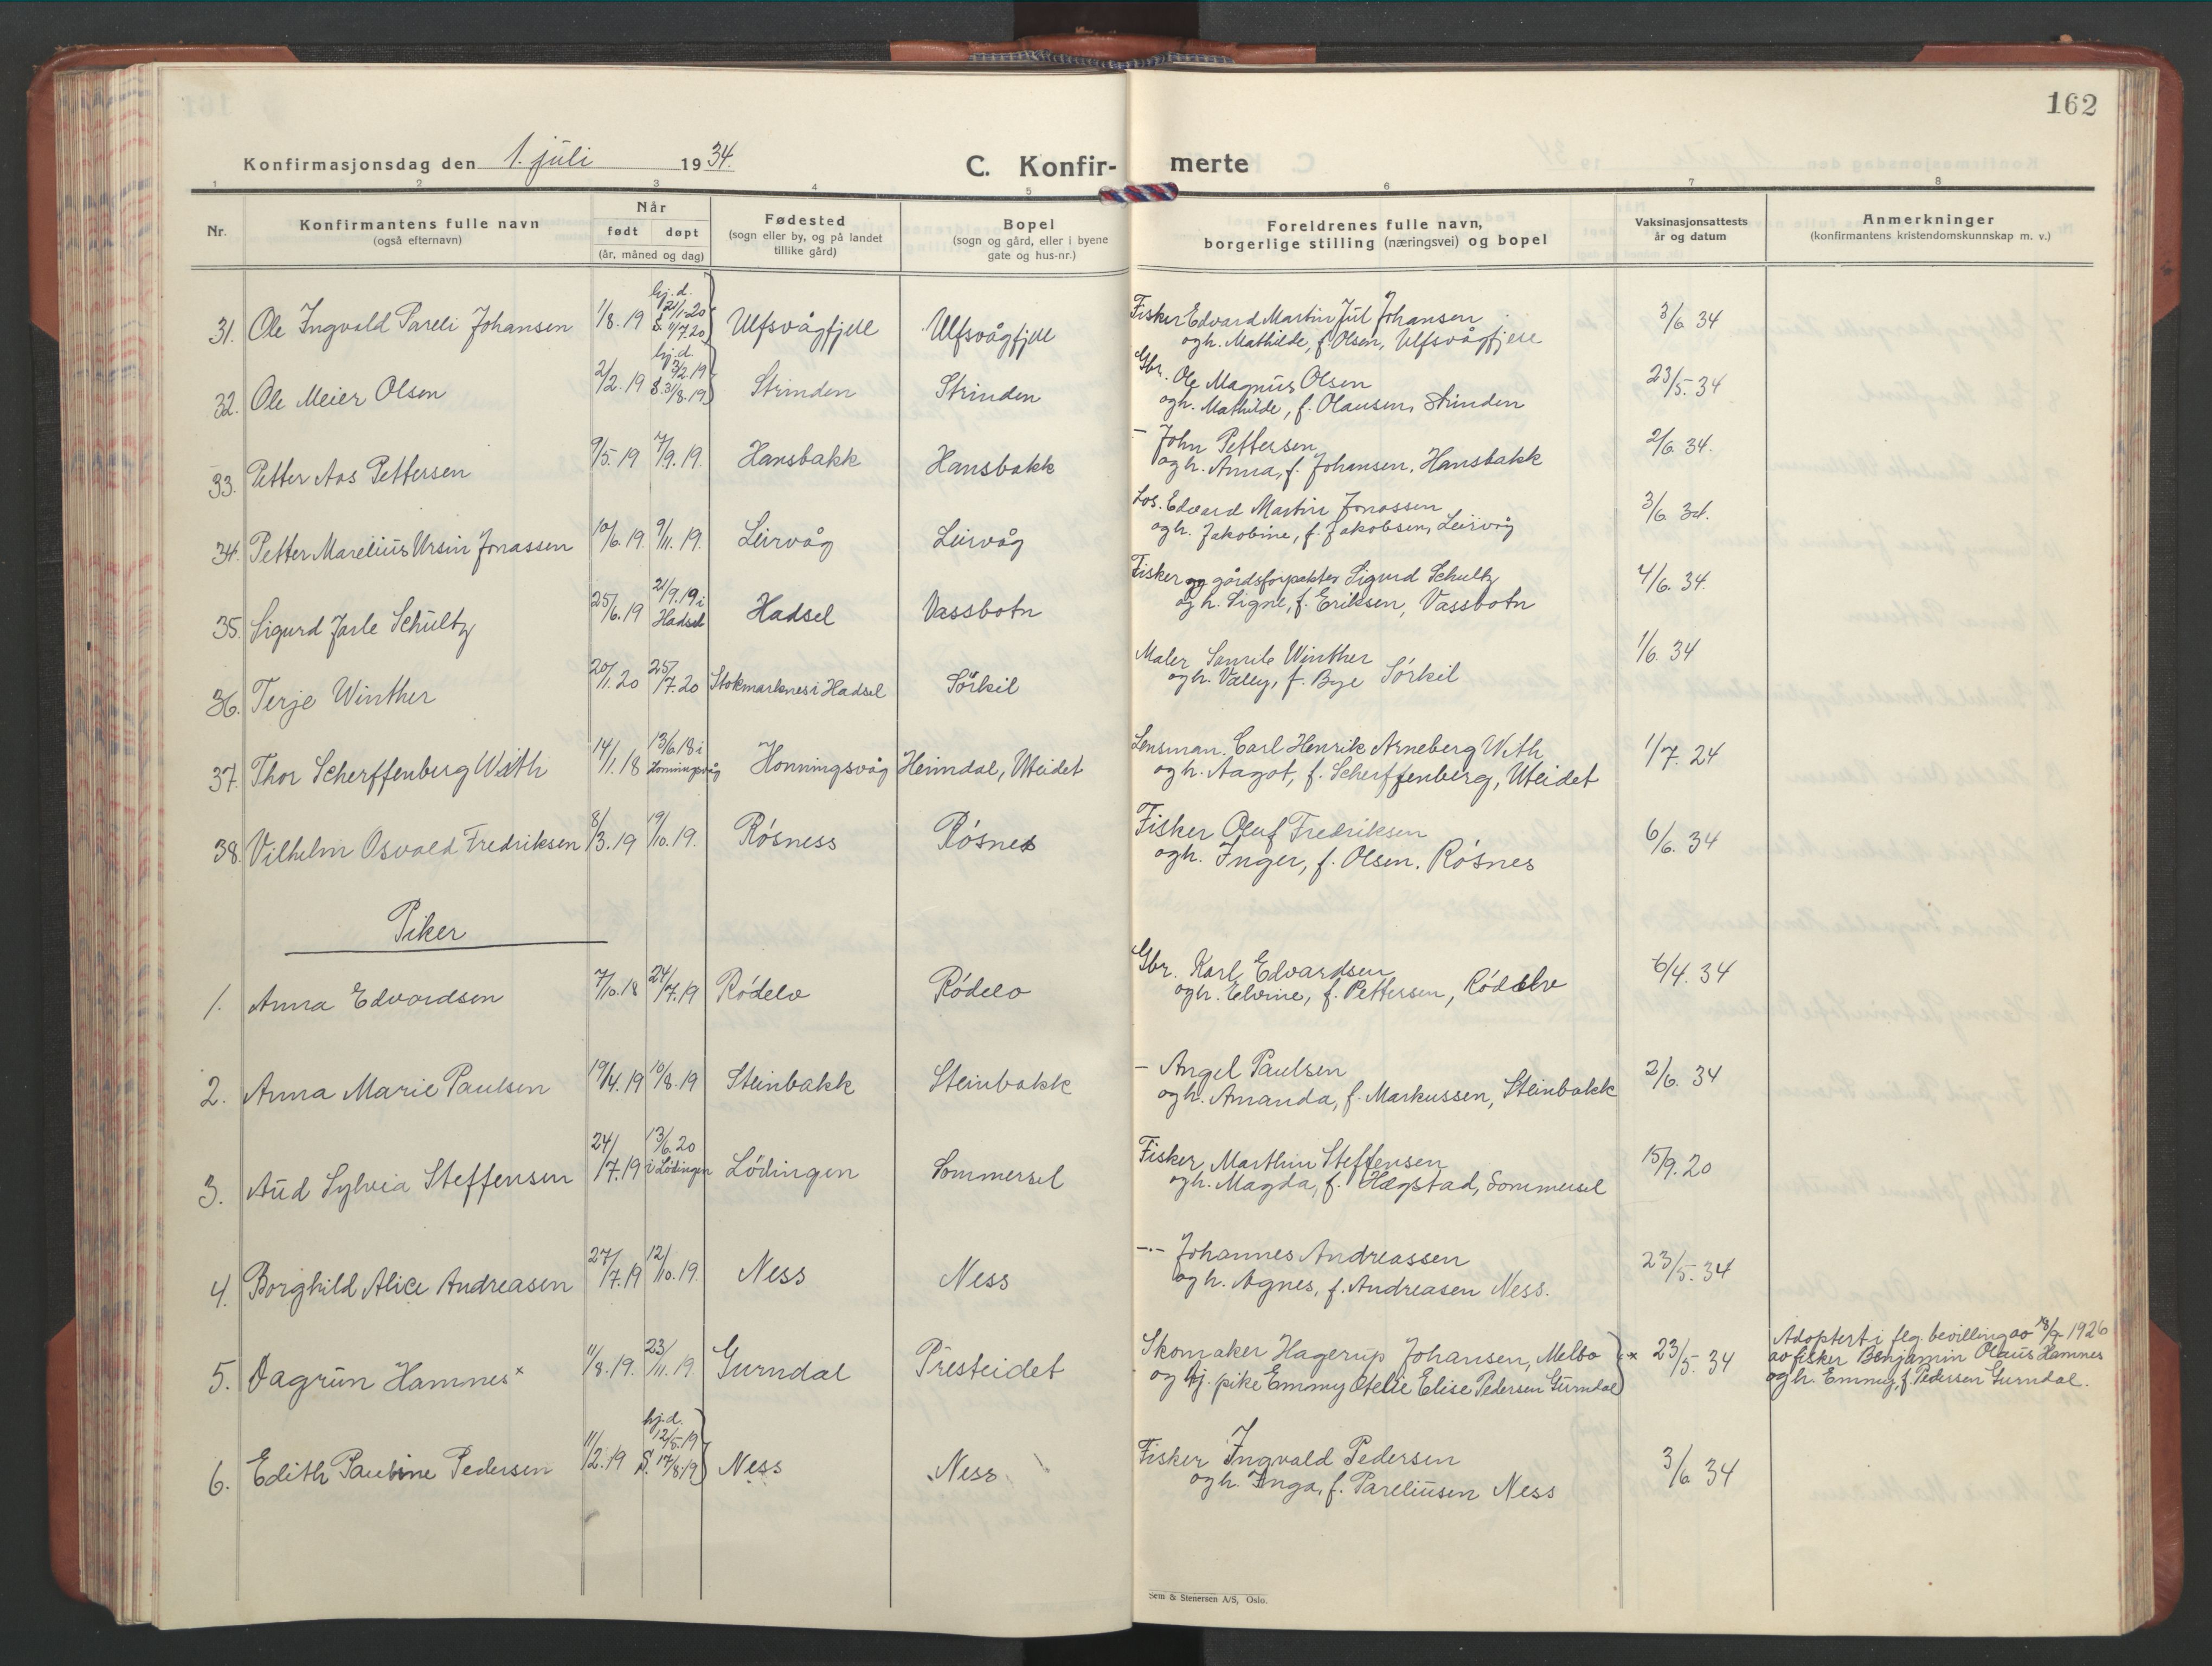 162
Konfirmasjonsdag den 1. juli 1934.
C. Konfir- merte
1 2 3 4 5 6 7 8
Nr.
Konfirmantens fulle navn
(også efternavn)
Når
født døpt
(år, måned og dag)
Fødested
(sogn eller by, og på landet
tillike gård)
Bopel
(sogn og gård, eller i byene
gate og hus-nr.)
Foreldrenes fulle navn,
borgerlige stilling (næringsvei) og bopel
Vaksinasjonsattests
år og datum
Anmerkninger
(konfirmantens kristendomskunnskap m. v.)
31. Ole Ingvald Pareli Johansen 1/8.19 hj.d. 21/1.20 S. 11/7.20 Ulfsvågfjell Ulfsvågfjell Fisker Edvard Martin Jul Johansen 3/6 34
og h. Mathilde, f. Olsen, Ulfsvågfjell
32. Ole Meier Olsen 2/2.19 hj.d. 3/2.19 S. 31/8.19 Strinden Strinden Gbr. Ole Magnus Olsen 23/5.34
og h. Mathilde, f. Olausen, Strinden
33. Petter Aas Pettersen 9/5.19 7/9.19. Hansbakk Hansbakk — John Pettersen 2/6 34.
og h. Anna, f. Johansen, Hansbakk
34. Petter Marelius Ursin Jonassen 10/6.19 9/11.19. Leirvåg Leirvåg Los. Edvard Martin Jonassen 3/6 34.
og h. Jakobine, f. Jakobsen, Leirvåg
35. Sigurd Jarle Schultz 25/6.19 21/9.19 i Hadsel Hadsel Vassbotn Fisker og gårdsforpakter Sigurd Schultz 4/6. 34.
og h. Signe, f. Eriksen, Vassbotn
36. Terje Winther 20/1.20 25/7.20 Stokmarknes i Hadsel Sørkil Maler Winther 1/6. 34
og h. Valley, f. Bye Sørkil
37. Thor Scherffenberg With 14/1.18 13/6.18 i Honningsvåg Honningsvåg Heimdal, Uteidet Lensman. Carl Henrik Arneberg With 1/7. 24
og h. Aagot, f. Scherffenberg, Uteidet
38. Vilhelm Osvald Fredriksen 8/3.19 19/10.19. Røsness Røsnes Fisker Oluf Fredriksen 6/6. 34
og h. Inger, f. Olsen. Røsnes
Piker
1. Anna Edvardsen 7/10.18 24/7.19 Rødelv Rødelv Gbr. Karl Edvardsen 6/4. 34
og h. Elvine, f. Pettersen, Rødelv
2. Anna Marie Paulsen 19/4.19 10/8.19 Steinbakk Steinbakk — Angel Paulsen 2/6. 34
og h. Amanda, f. Markussen, Steinbakk
3. Aud Sylvia Steffensen 24/7.19 13/6.20 i Lødingen Lødingen Sommersel Fisker Marthin Steffensen 15/9. 20
og h. Magda, f. Hægstad, Sommersel
4. Borghild Alice Andreasen 27/7.19 12/10.19. Ness Ness —.— Johannes Andreassen 23/5. 34
og h. Agnes, f. Andreasen Ness.
5. Dagrun Hamnes x 11/8.19. 23/11.19 Gurndal Presteidet Skomaker Hagerup Johansen, Melbo x 23/5. 34
og hj. pike Emmy Otelie Elise Pedersen Gurndal
Adoptert i flg. bevilling av 18/9 1926
av fisker Benjamin Olaus Hamnes
og h. Emmy, f. Pedersen Gurndal.
6. Edith Pauline Pedersen 11/2.19 hj.d. 12/5.19 S. 17/8.19 Ness Ness Fisker Ingvald Pedersen 3/6 34
og h. Inga, f. Pareliusen Ness
Sem & Stenersen A/S, Oslo.